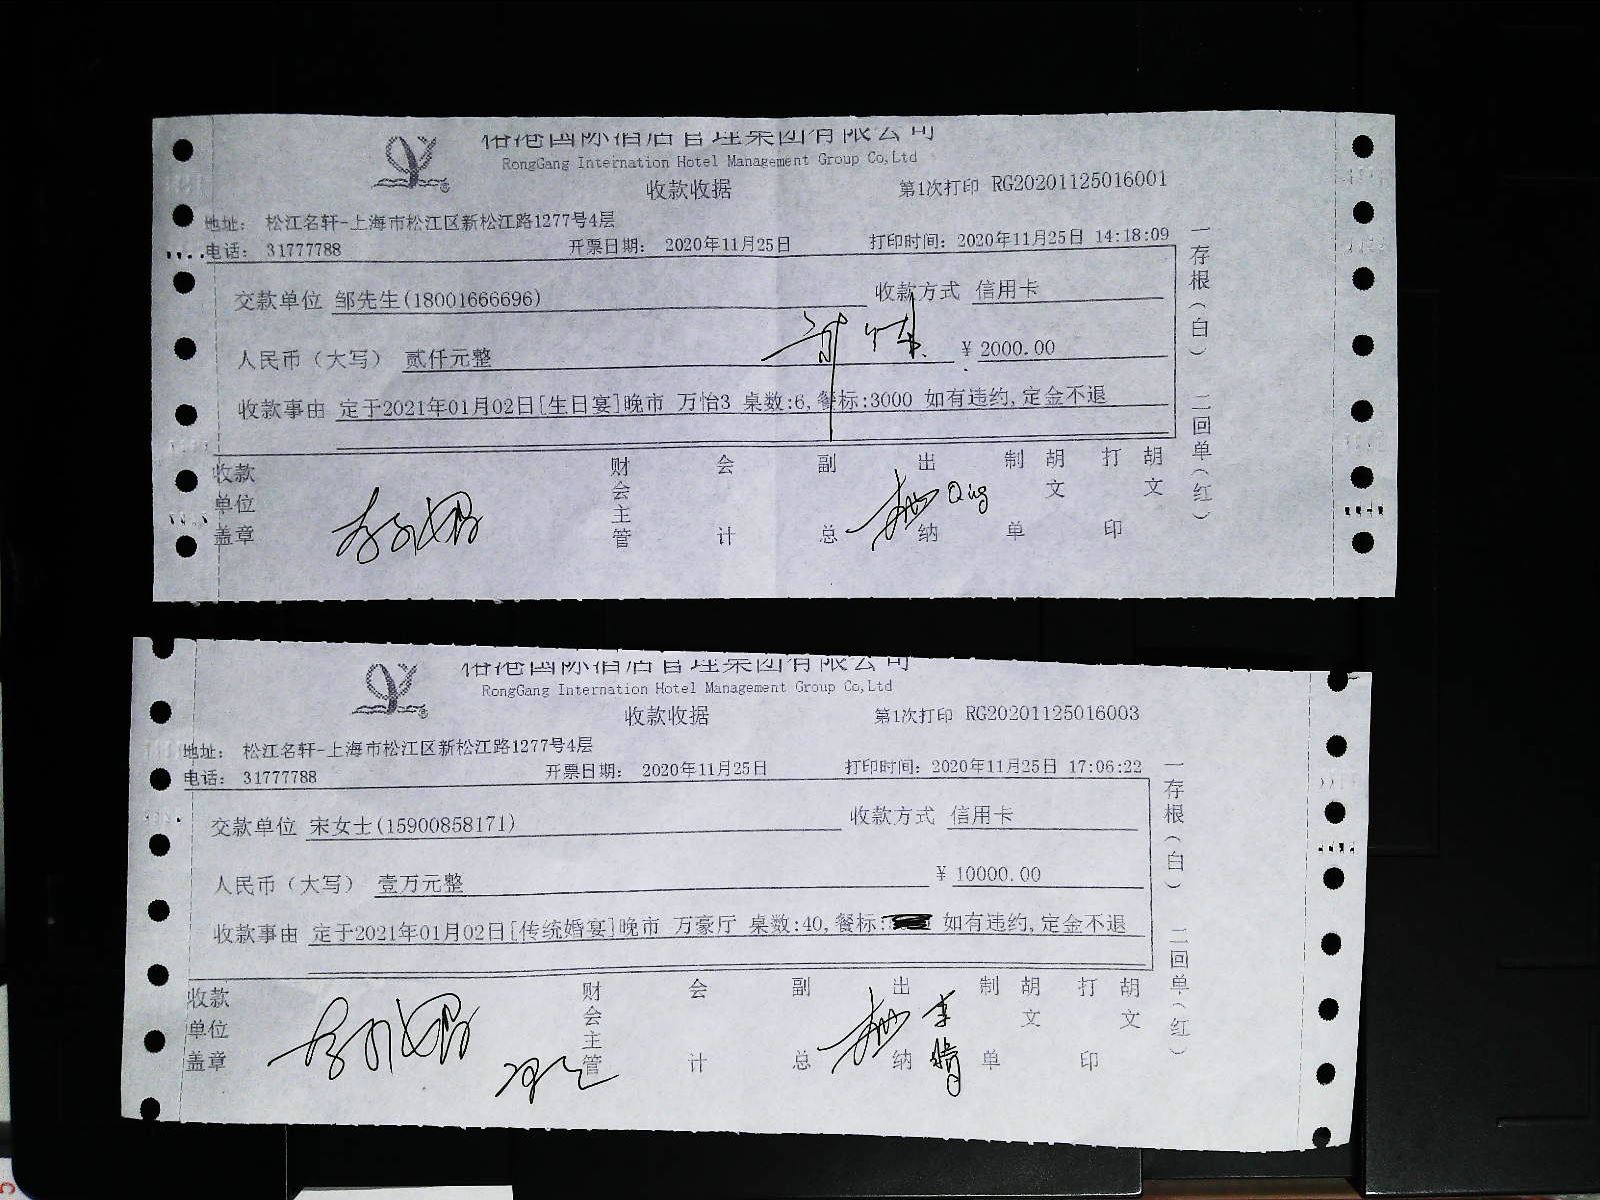 裕港国际酒店管理集团有限公司
RongGang Internation Hotel Management Group Co,Ltd
收款收据
第1次打印 RG20201125016001
地址： 松江名轩-上海市松江区新松江路1277号4层
电话： 31777788 开票日期： 2020年11月25日 打印时间：2020年11月25日 14:18:09
交款单位 邹先生(18001666696) 收款方式 信用卡
人民币（大写） 贰仟元整 ¥ 2000.00
收款事由 定于2021年01月02日[生日宴]晚市 万怡3 桌数:6,餐标:3000 如有违约,定金不退
收款单位盖章 财会主管 会计 副总 出纳 制单 胡文 打印 胡文
一存根（白） 二回单（红）
裕港国际酒店管理集团有限公司
RongGang Internation Hotel Management Group Co,Ltd
收款收据
第1次打印 RG20201125016003
地址： 松江名轩-上海市松江区新松江路1277号4层
电话： 31777788 开票日期： 2020年11月25日 打印时间：2020年11月25日 17:06:22
交款单位 宋女士(15900858171) 收款方式 信用卡
人民币（大写） 壹万元整 ¥ 10000.00
收款事由 定于2021年01月02日[传统婚宴]晚市 万豪厅 桌数:40,餐标: 如有违约,定金不退
收款单位盖章 财会主管 会计 副总 出纳 制单 胡文 打印 胡文
一存根（白） 二回单（红）